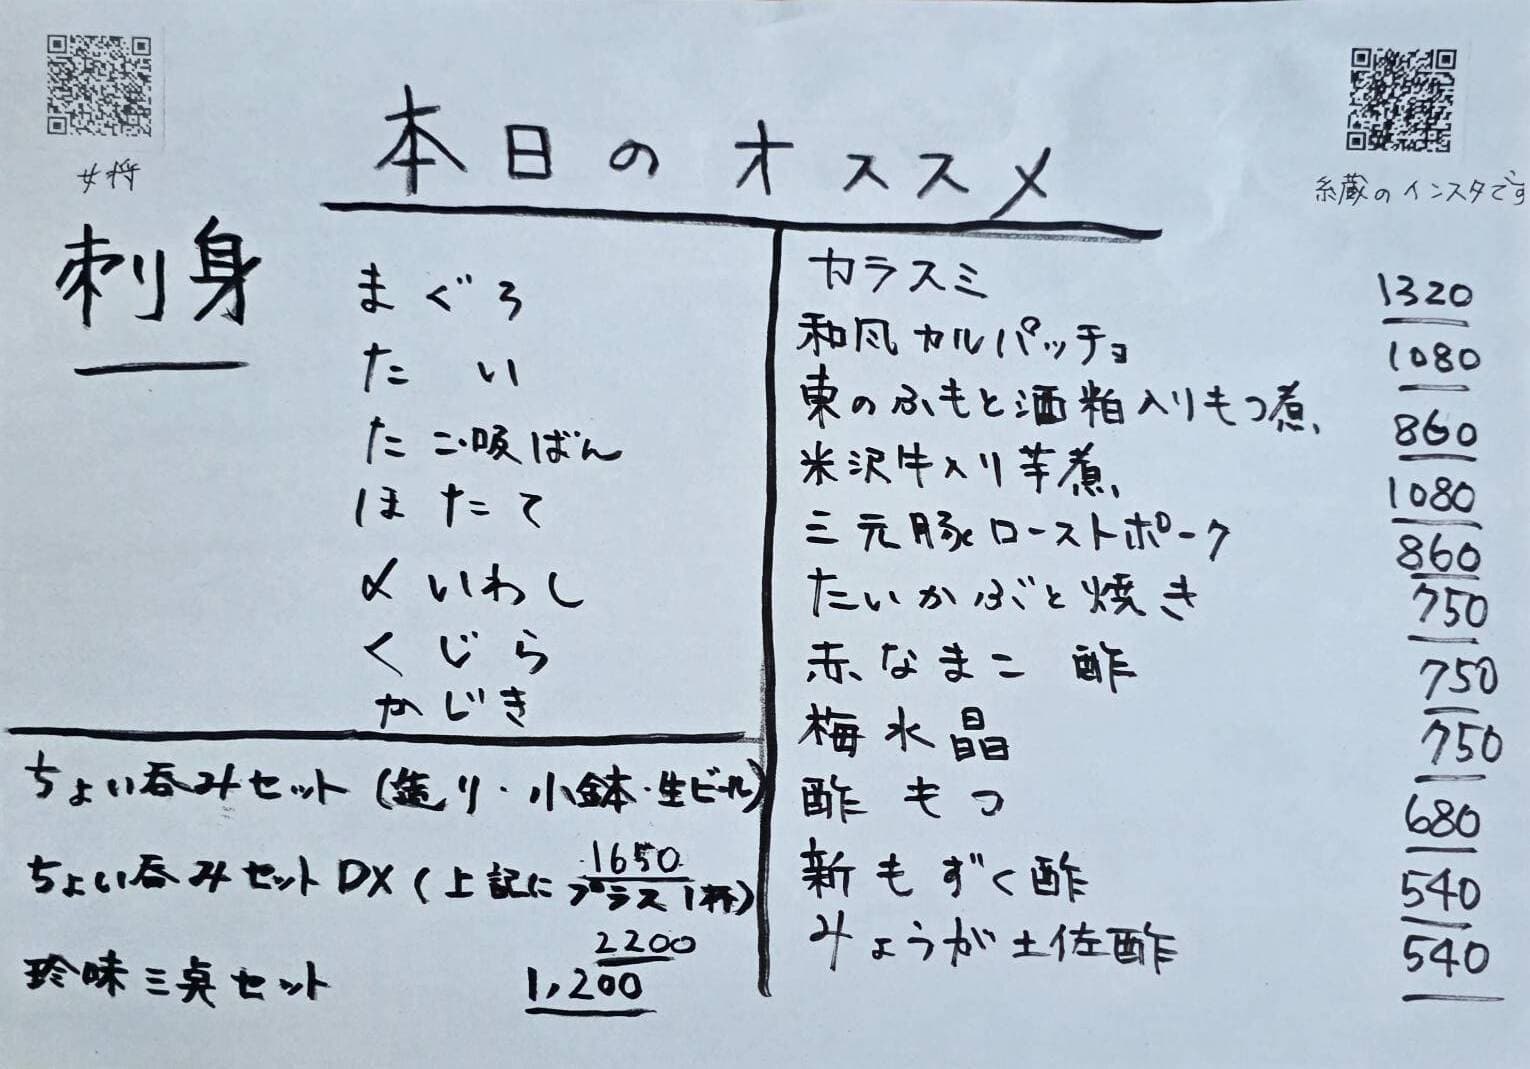 女将
糸蔵のインスタです
本日のオススメ
刺身
まぐろ
たい
たこ吸ばん
ほたて
〆いわし
くじら
かじき
ちょい呑みセット(造り・小鉢・生ビール)
1650
ちょい呑みセットDX(上記にプラス1杯)
2200
珍味三点セット 1,200
カラスミ 1320
和風カルパッチョ 1080
東のふもと酒粕入りもつ煮 860
米沢牛入り芋煮 1080
三元豚ローストポーク 860
たいかぶと焼き 750
赤なまこ酢 750
梅水晶 750
酢もつ 680
新もずく酢 540
みょうが土佐酢 540